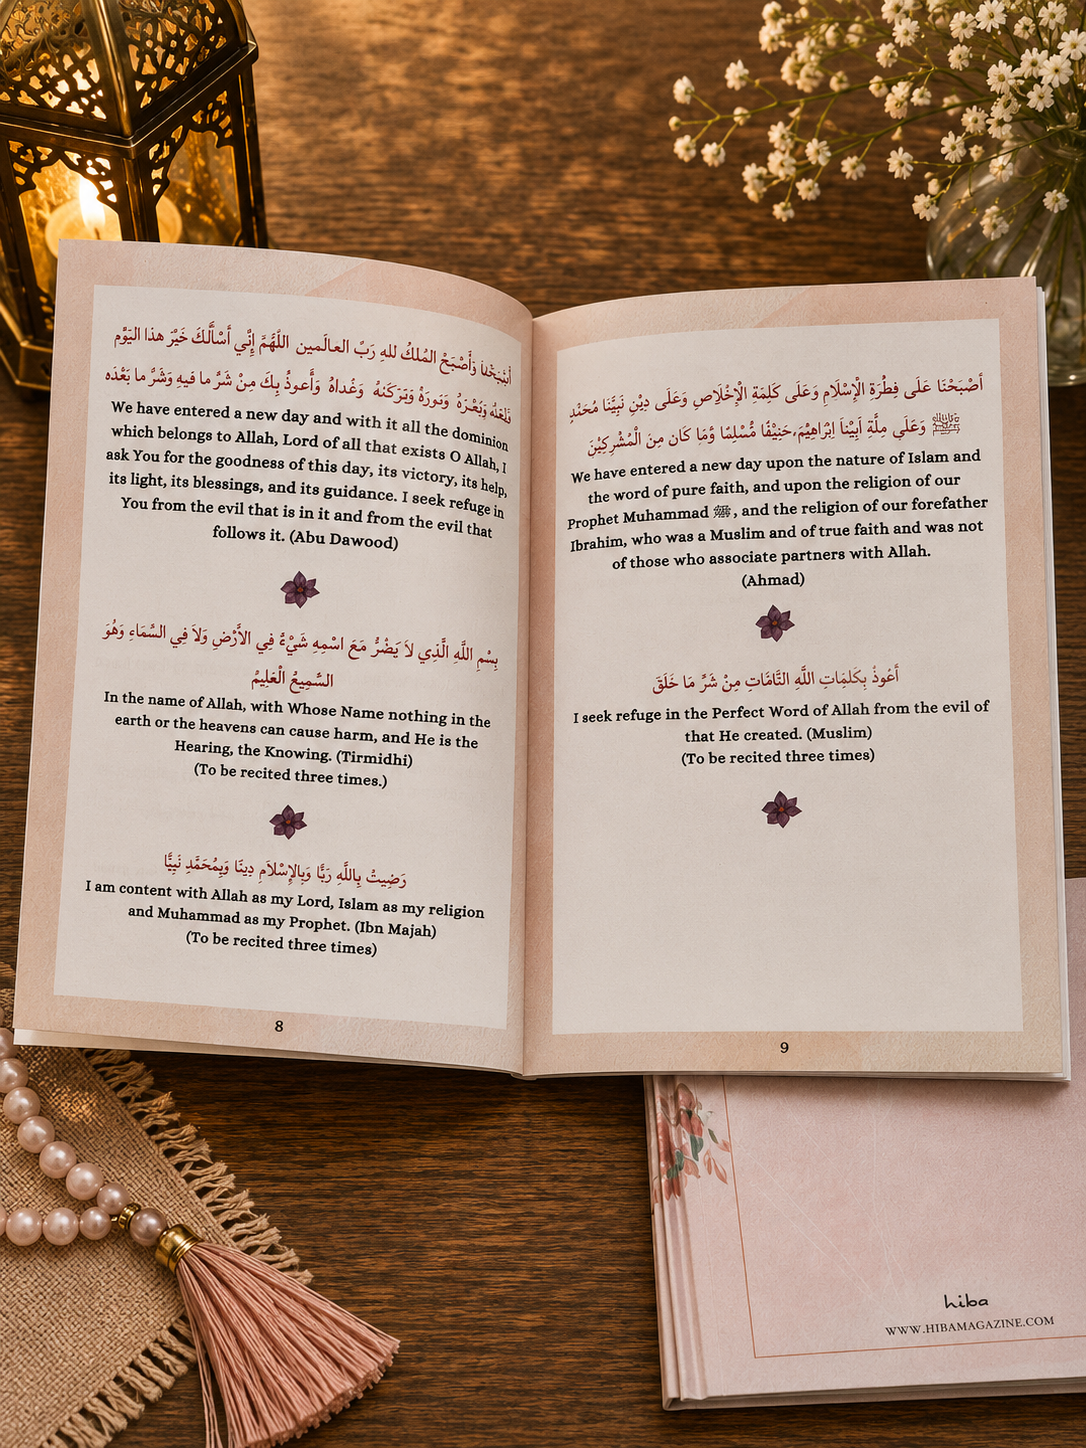 وَأَصْبَحْ المُلكُ للهِ رَبِّ العالَمين اللَّهُمَّ إِنِّي أَسْأَلُكَ خَيْرَ هذا اليَوْم
وَأَعوذُ بِكَ مِنْ شَرِّ ما فيهِ وَشَرِّ ما بَعْدَه
We have entered a new day and with it all the dominion
which belongs to Allah, Lord of all that exists O Allah, I
ask You for the goodness of this day, its victory, its help,
its light, its blessings, and its guidance. I seek refuge in
You from the evil that is in it and from the evil that
follows it. (Abu Dawood)
بِسْمِ اللَّهِ الَّذِي لاَ يَضُرُّ مَعَ اسْمِهِ شَيْءٌ فِي الأَرْضِ وَلاَ فِي السَّمَاءِ وَهُوَ
السَّمِيعُ الْعَلِيمُ
In the name of Allah, with Whose Name nothing in the
earth or the heavens can cause harm, and He is the
Hearing, the Knowing. (Tirmidhi)
(To be recited three times.)
رَضِيتُ بِاللَّهِ رَبًّا وَبِالإِسْلاَمِ دِينًا وَبِمُحَمَّدٍ نَبِيًّا
I am content with Allah as my Lord, Islam as my religion
and Muhammad as my Prophet. (Ibn Majah)
(To be recited three times)
8
أَصْبَحْنَا عَلَى فِطْرَةِ الْإِسْلَامِ وَعَلَى كَلِمَةِ الْإِخْلَاصِ وَعَلَى دِيْنِ نَبِيِّنَا
ﷺ وَعَلَى مِلَّةِ أَبِيْنَا اِبْرَاهِيْمَ، حَنِيْفًا مُّسْلِمًا وَّمَا كَانَ مِنَ الْمُشْرِكِيْنَ
We have entered a new day upon the nature of Islam and
the word of pure faith, and upon the religion of our
Prophet Muhammad ﷺ, and the religion of our forefather
Ibrahim, who was a Muslim and of true faith and was not
of those who associate partners with Allah.
(Ahmad)
أَعُوذُ بِكَلِمَاتِ اللَّهِ التَّامَّاتِ مِنْ شَرِّ مَا خَلَقَ
I seek refuge in the Perfect Word of Allah from the evil of
that He created. (Muslim)
(To be recited three times)
9
hiba
WWW.HIBAMAGAZINE.COM